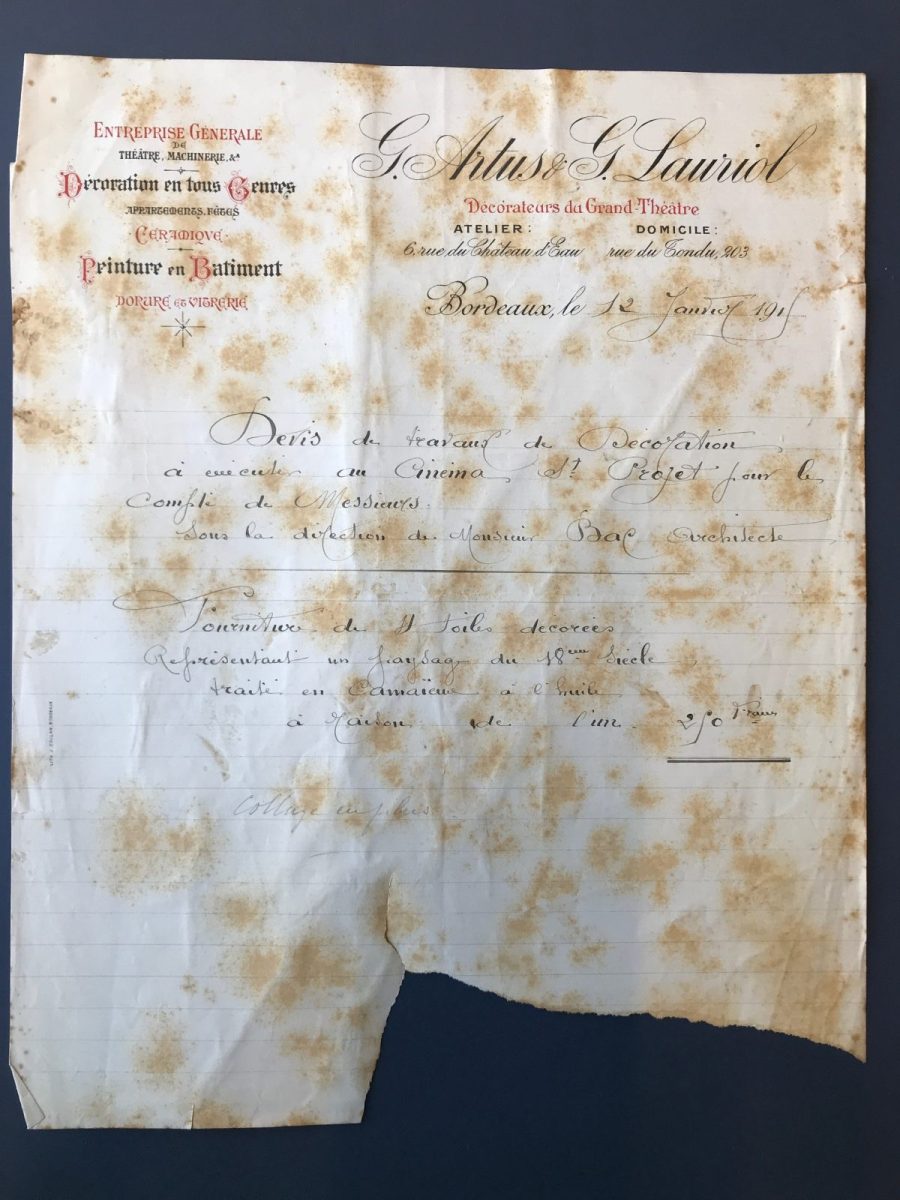 ENTREPRISE GÉNÉRALE
DE
THÉÂTRE, MACHINERIE, &ª
Décoration en tous Genres
APPARTEMENTS, FÊTES
CÉRAMIQUE
Peinture en Batiment
DORURE ET VITRERIE
G. Artus & G. Lauriol
Décorateurs du Grand-Théâtre
ATELIER : DOMICILE :
6, rue du Château d'Eau rue du Tondu, 203
Bordeaux, le 12 Janvier 191
Devis de travaux de Décoration
à exécuter au Cinéma St Projet pour le
Compte de Messieurs.
Sous la direction de Monsieur Bac Architecte
Fourniture de toiles décorées
Représentant un paysage du 18ème Siècle
traité en Camaïeux à l'huile
à raison de l'un. 250 Francs
Collage en plus